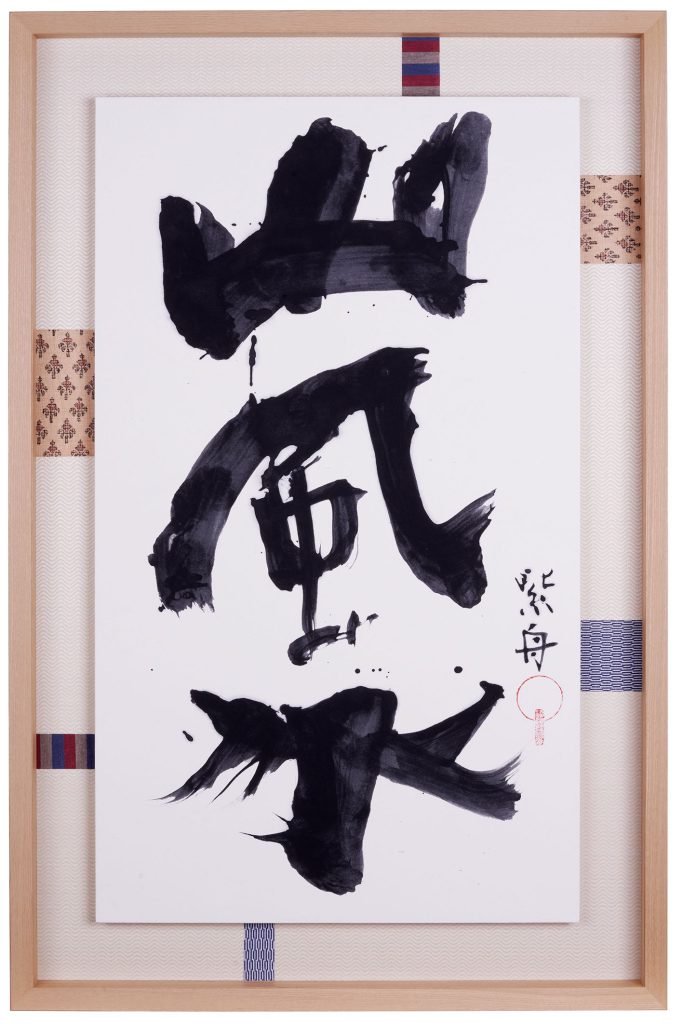 山
風
水
紫舟